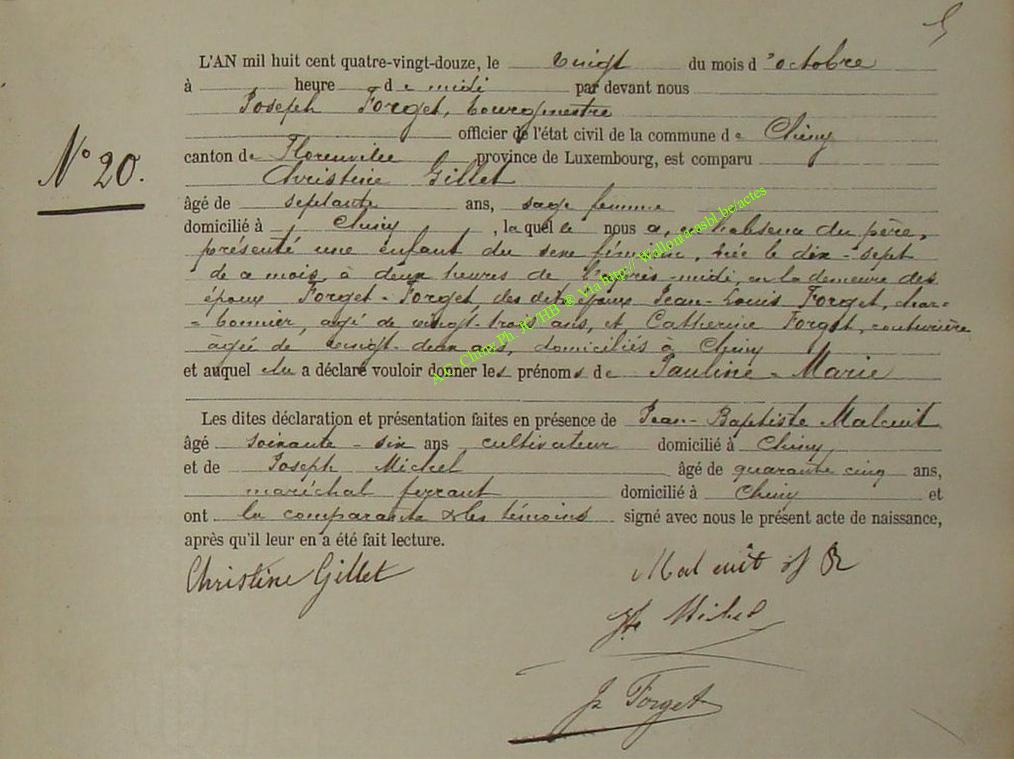 L'AN mil huit cent quatre-vingt-douze, le vingt du mois d'octobre
à heure de midi par devant nous
Joseph Forget, bourgmestre
officier de l'état civil de la commune de Chiny
canton de Florenville province de Luxembourg, est comparu
N° 20.
Christine Gillet
âgé de septante ans, sage femme
domicilié à Chiny, laquelle nous a, en l'absence du père,
présenté une enfant du sexe féminin, née le dix-sept
de ce mois, à deux heures de l'après-midi, en la demeure des
époux Forget-Forget, des dits époux Jean-Louis Forget, char=
=bonnier, agé de vingt-trois ans, et Catherine Forget, couturière
âgée de vingt-deux ans, domiciliés à Chiny
et auquel elle a déclaré vouloir donner les prénoms de Pauline-Marie
Les dites déclaration et présentation faites en présence de Jean-Baptiste Malcuit
âgé soixante-six ans cultivateur domicilié à Chiny
et de Joseph Michel âgé de quarante cinq ans,
maréchal ferrant domicilié à Chiny et
ont la comparante & les témoins signé avec nous le présent acte de naissance,
après qu'il leur en a été fait lecture.
Christine Gillet
Malcuit
Michel
Forget
Chiny Ph. JC/HB ® Via http:// Wallonia-asbl.be/actes